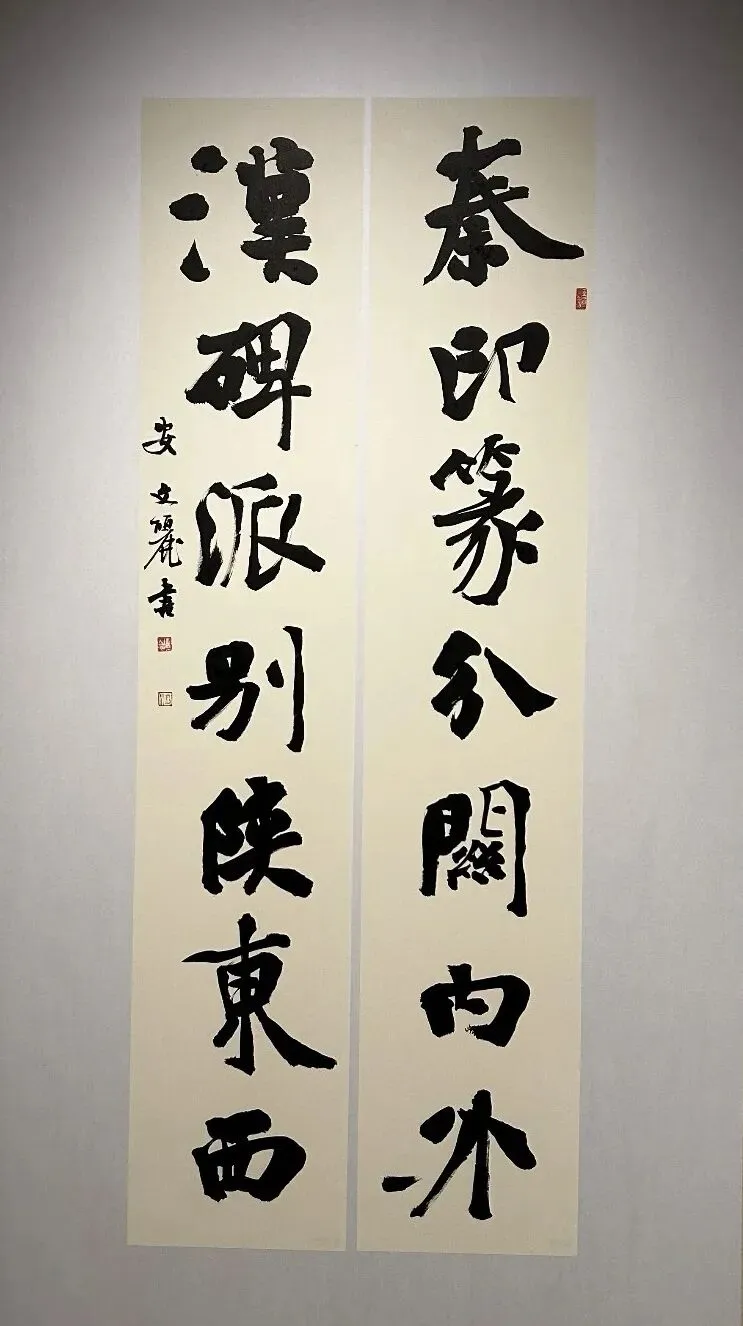 秦印篆分關内外
漢碑派别陝東西
安文麗書